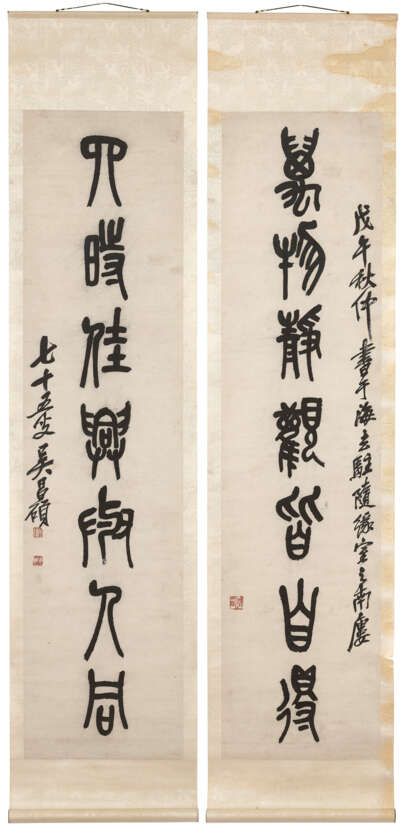 萬物靜觀皆自得
戊午秋仲書于海去駐隨緣室之南廔
四時佳興與人同
七十五叟吳昌碩